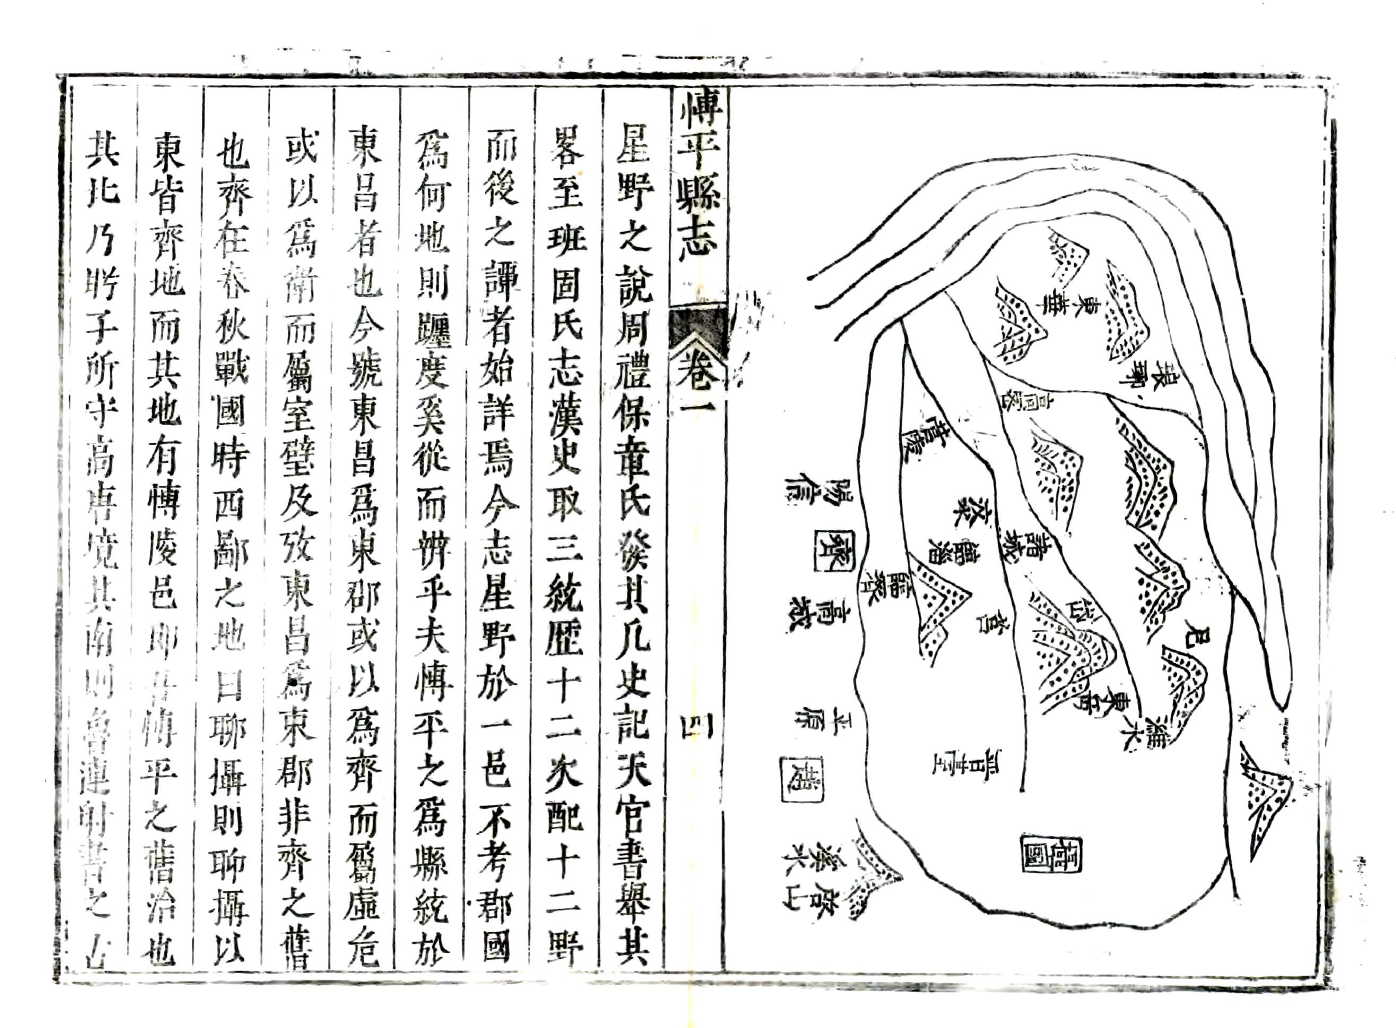 東華
琅邪
高密
營陵
蓬萊
諸城
陽信
齊
高城
臨淄
莒
岱
尼
東阿
濰水
平原
趙
晋臺
莒國
漯水
嶅山
博平縣志
卷一
四
星野之說周禮保章氏發其凡史記天官書舉其
畧至班固氏志漢史取三統歷十二次配十二野
而後之譚者始詳焉今志星野於一邑不考郡國
爲何地則躔度奚從而辨乎夫博平之爲縣統於
東昌者也今號東昌爲東郡或以爲齊而屬虛危
或以爲衛而屬室壁及攷東昌爲東郡非齊之舊
也齊在春秋戰國時西鄙之地曰聊攝則聊攝以
東皆齊地而其地有博陵邑即吾博平之舊治也
其北乃盻子所守高唐境其南則魯連射書之